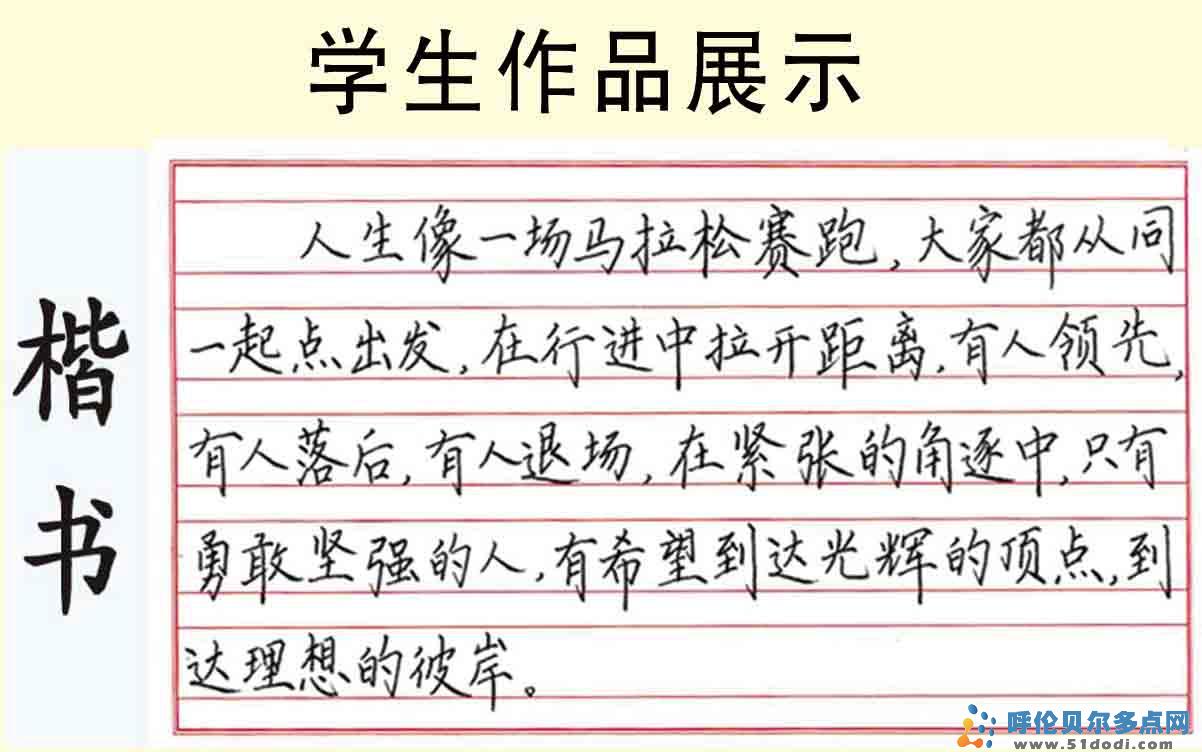 学生作品展示
楷书
人生像一场马拉松赛跑,大家都从同
一起点出发,在行进中拉开距离,有人领先,
有人落后,有人退场,在紧张的角逐中,只有
勇敢坚强的人,有希望到达光辉的顶点,到
达理想的彼岸。
呼伦贝尔多点网
www.51dodi.com